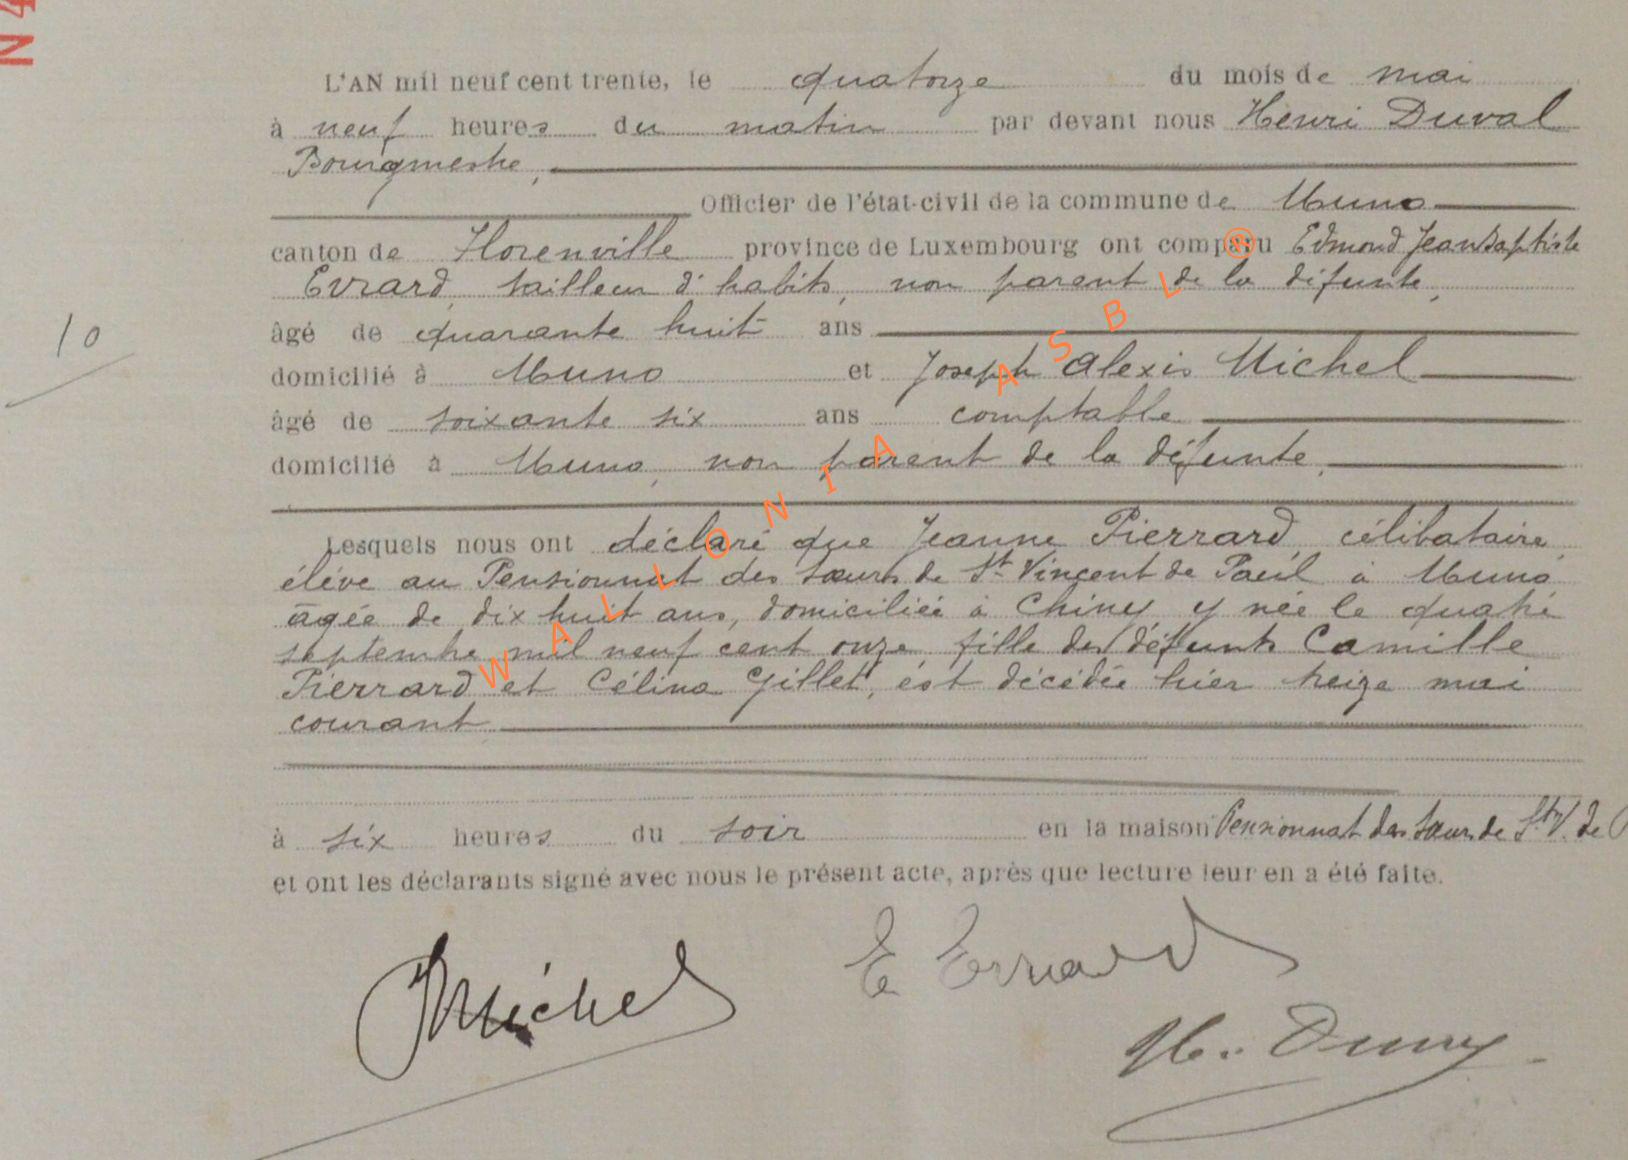 N 4
L'AN mil neuf cent trente, le quatorze du mois de mai
à neuf heures du matin par devant nous Henri Duval
Bourgmestre,
Officier de l'état-civil de la commune de Muno
canton de Florenville province de Luxembourg ont comparu Edmond Jean Baptiste
Evrard, tailleur d'habits, non parent de la défunte,
âgé de quarante huit ans
domicilié à Muno et Joseph Alexis Michel
10
âgé de soixante six ans comptable
domicilié à Muno, non parent de la défunte,
Lesquels nous ont déclaré que Jeanne Pierrard, célibataire,
élève au Pensionnat des Sœurs de St Vincent de Paul à Muno
âgée de dix huit ans, domiciliée à Chiny y née le quatre
septembre mil neuf cent onze, fille des défunts Camille
Pierrard et Célina Gillet, est décédée hier treize mai
courant
à six heures du soir en la maison Pensionnat des Sœurs de St V. de P
et ont les déclarants signé avec nous le présent acte, après que lecture leur en a été faite.
JMichel
E Evrard
H. Duval
WALLONIA ASBL ®